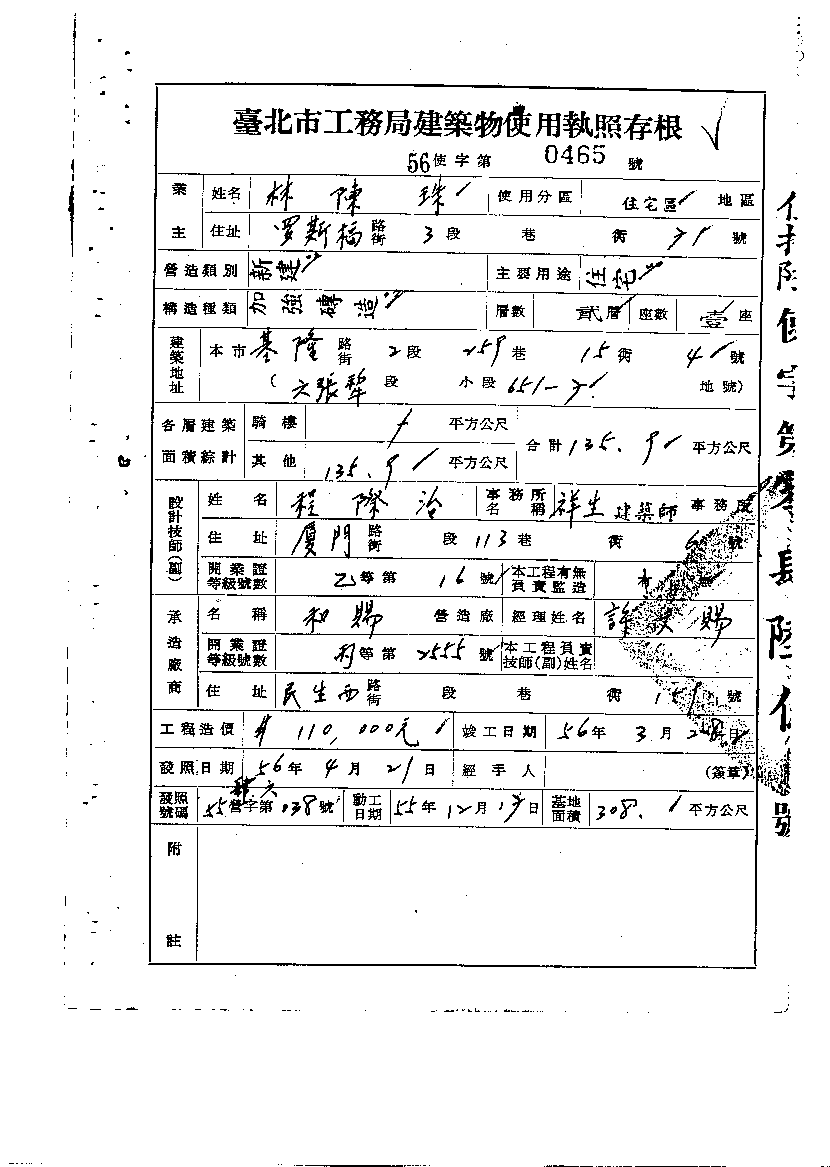 臺北市工務局建築物使用執照存根
56使字第 0465 號
業主 姓名 林陳珠 使用分區 住宅區 地區
住址 罗斯福路街 3段 巷 衖 號
營造類別 新建 主要用途 住宅
構造種類 加強磚造 層數 貳層 座數 壹座
建築地址 本市 基隆路街 2段 259巷 15衖 4號
(六張犂段 小段 651- 地號)
各層建築面積綜計 騎樓 平方公尺 合計 135.9 平方公尺
其他 135.9 平方公尺
設計技師(副) 姓名 程際治 事務所名稱 祥生建築師事務所
住址 厦門路街 段 113巷 衖 號
開業證等級號數 乙等第 16號 本工程有無負責監造 有 無
承造廠商 名稱 和賜 營造廠 經理姓名 許 賜
開業證等級號數 丙等第 2555號 本工程負責技師(副)姓名
住址 民生西路街 段 巷 衖 號
工程造價 110,000元 竣工日期 56年 3月 日
發照日期 56年 4月 21日 經手人 (簽章)
發照號碼 55營字第 038號 動工日期 55年 12月 日 基地面積 308. 平方公尺
附註